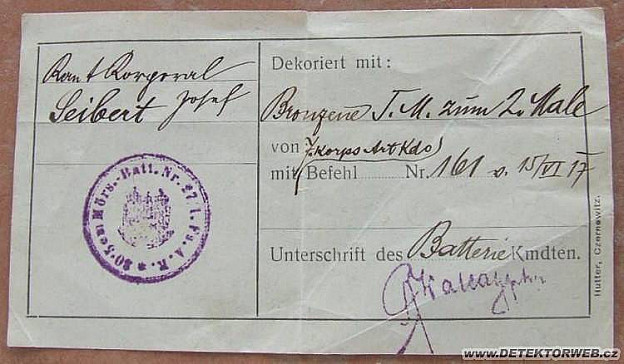 Korporal
Seibert Josef
Dekoriert mit:
Bronzene T. M. zum 2. Male
von Korps Art Kdo
mit Befehl Nr. 161 v. 15/VI 17
Unterschrift des Batterie Kmdten.
30·5 cm Mörs.-Batt. Nr.
Hutter, Czernowitz.
www.DETEKTORWEB.cz